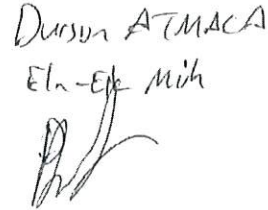 Dursun ATMACA
Elk-Elk Müh